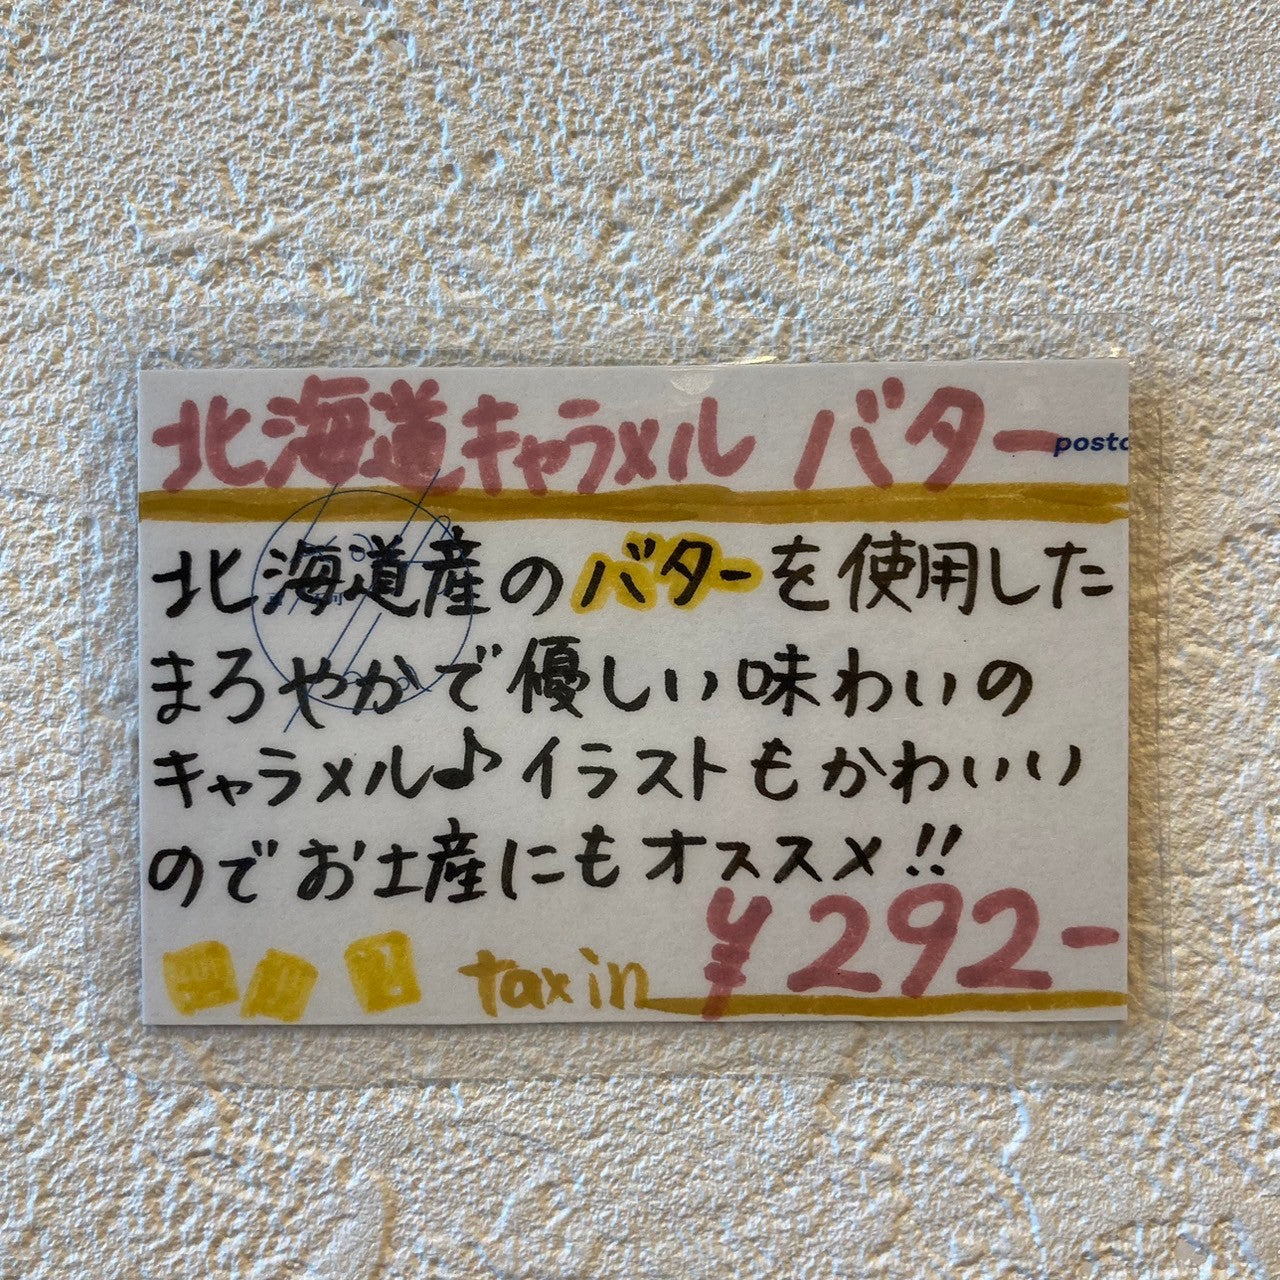 北海道キャラメル バター
postc
北海道産のバターを使用した
まろやかで優しい味わいの
キャラメル♪イラストもかわいい
のでお土産にもオススメ!!
tax in ¥292-